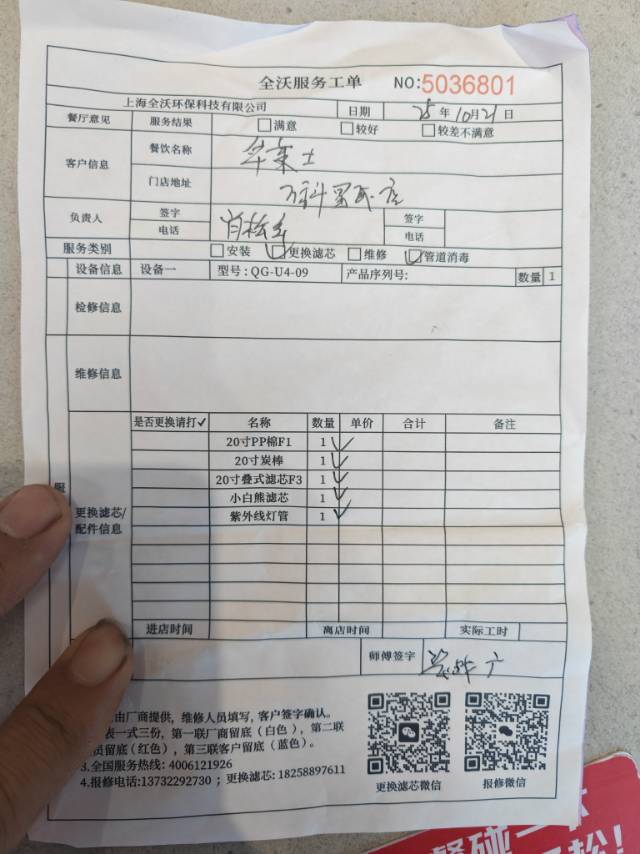 全沃服务工单 NO:5036801
上海全沃环保科技有限公司 日期 25年10月21日
餐厅意见 服务结果 满意 较好 较差不满意
客户信息 餐饮名称 华莱士
门店地址 万科
负责人 签字 签字
电话 电话
服务类别 安装 更换滤芯 维修 管道消毒
设备信息 设备一 型号:QG-U4-09 产品序列号: 数量 1
检修信息
维修信息
是否更换请打✓ 名称 数量 单价 合计 备注
20寸PP棉F1 1
20寸炭棒 1
20寸叠式滤芯F3 1
小白熊滤芯 1
紫外线灯管 1
更换滤芯/
配件信息
进店时间 离店时间 实际工时
师傅签字
由厂商提供,维修人员填写,客户签字确认。
表一式三份,第一联厂商留底(白色),第二联
员留底(红色),第三联客户留底(蓝色)。
3.全国服务热线: 4006121926
4.报修电话:13732292730 ; 更换滤芯: 18258897611
更换滤芯微信 报修微信